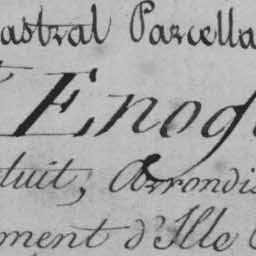 astral Parcella
Enog
duit, Arrondis
ment d'Ille